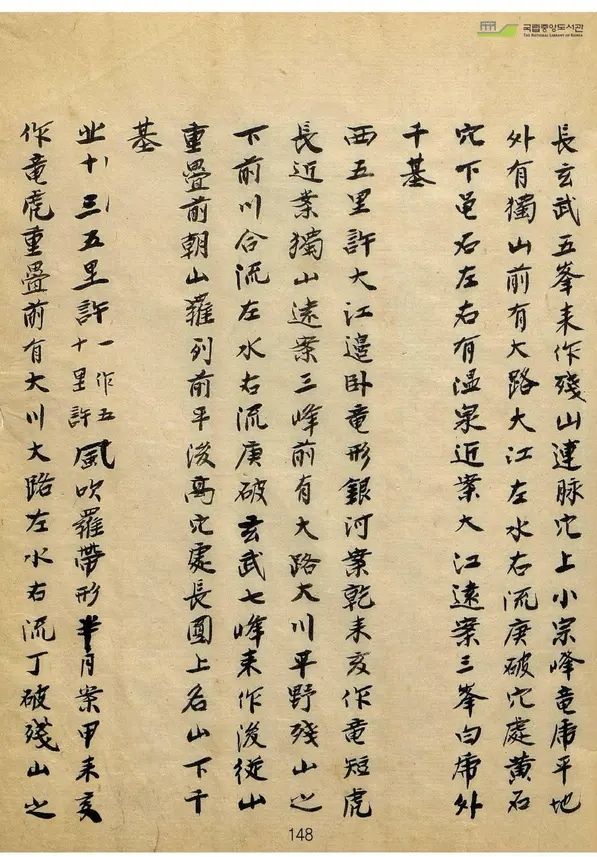 국립중앙도서관
THE NATIONAL LIBRARY OF KOREA
長玄武五峯来作殘山連脉穴上小宗峰竜虎平地
外有獨山前有大路大江左水右流庚破穴處黄石
穴下邑石左右有温泉近案大江遠案三峯白虎外
千基
西五里許大江邉卧竜形銀河案乾来亥作竜短虎
長近案獨山遠案三峰前有大路大川平野殘山之
下前川合流左水右流庚破玄武七峰来作後從山
重疊前朝山羅列前平後高穴處長圓上名山下千
基
北十三五里許一作五十里許風吹羅帶形半月案甲来亥
作竜虎重疊前有大川大路左水右流丁破殘山之
148